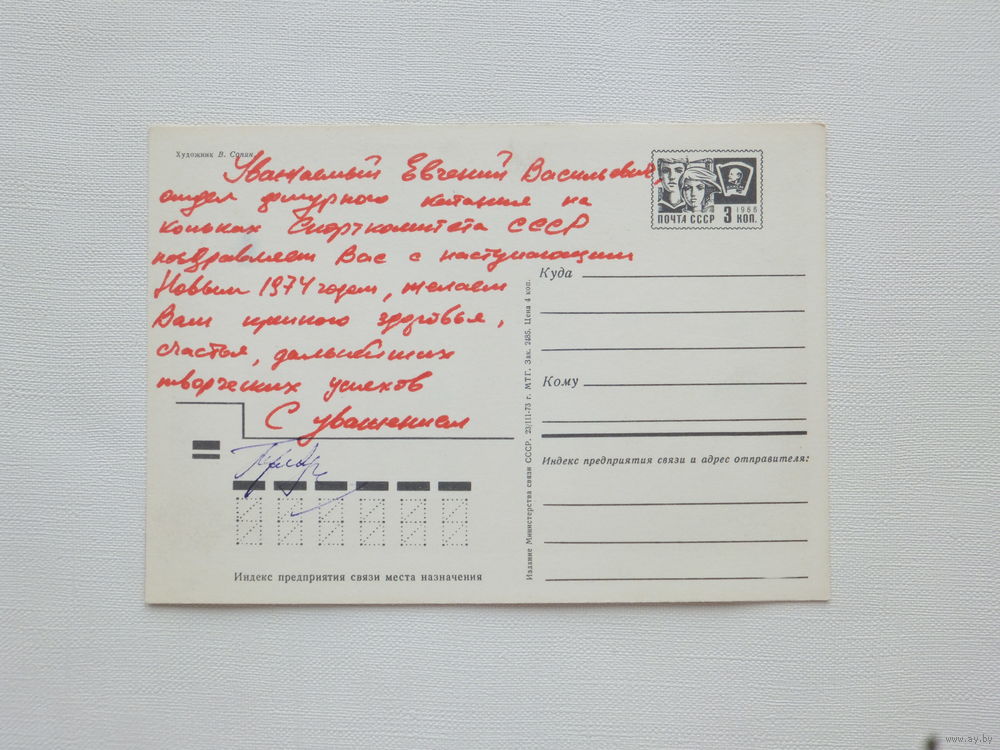 Художник В. Сонин
Уважаемый Евгений Васильевич,
отдел фигурного катания на
коньках Спорткомитета СССР
поздравляет Вас с наступающим
Новым 1974 годом, желаем
Вам крепкого здоровья,
счастья, дальнейших
творческих успехов
С уважением
1966
ПОЧТА СССР 3 КОП.
Куда
Кому
Индекс предприятия связи и адрес отправителя:
Индекс предприятия связи места назначения
Издание Министерства связи СССР. 23/111-73 г. МТГ. Зак. 2485. Цена 4 коп.
www.ay.by